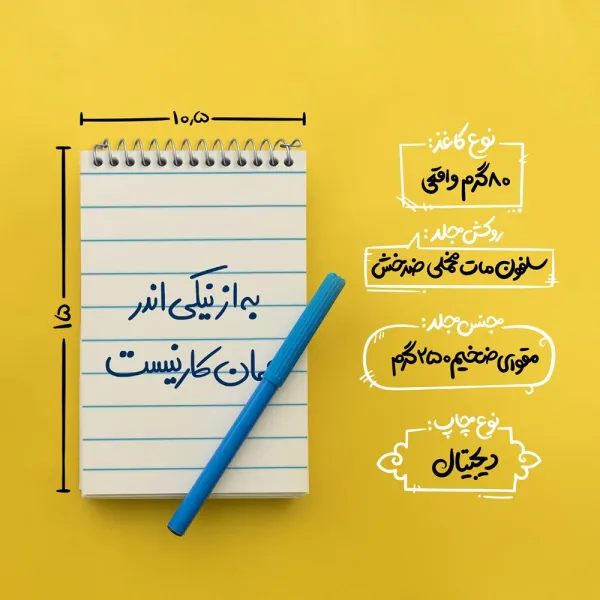 ۱۰,۵
۱۵
به از نیکی اندر
جهان کار نیست
نوع کاغذ:
۸۰ گرم واقعی
روکش جلد:
سلفون مات مخملی ضدخش
جنس جلد:
مقوای ضخیم ۲۵۰ گرم
نوع چاپ:
دیجیتال